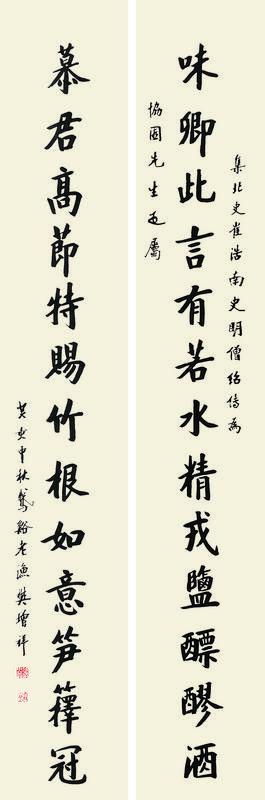 味卿此言有若水精戎鹽醥醪酒
集北史崔浩南史明僧紹傳為
協園先生正屬
慕君高莭特賜竹根如意笋籜冠
癸亥中秋谿老漁樊增祥